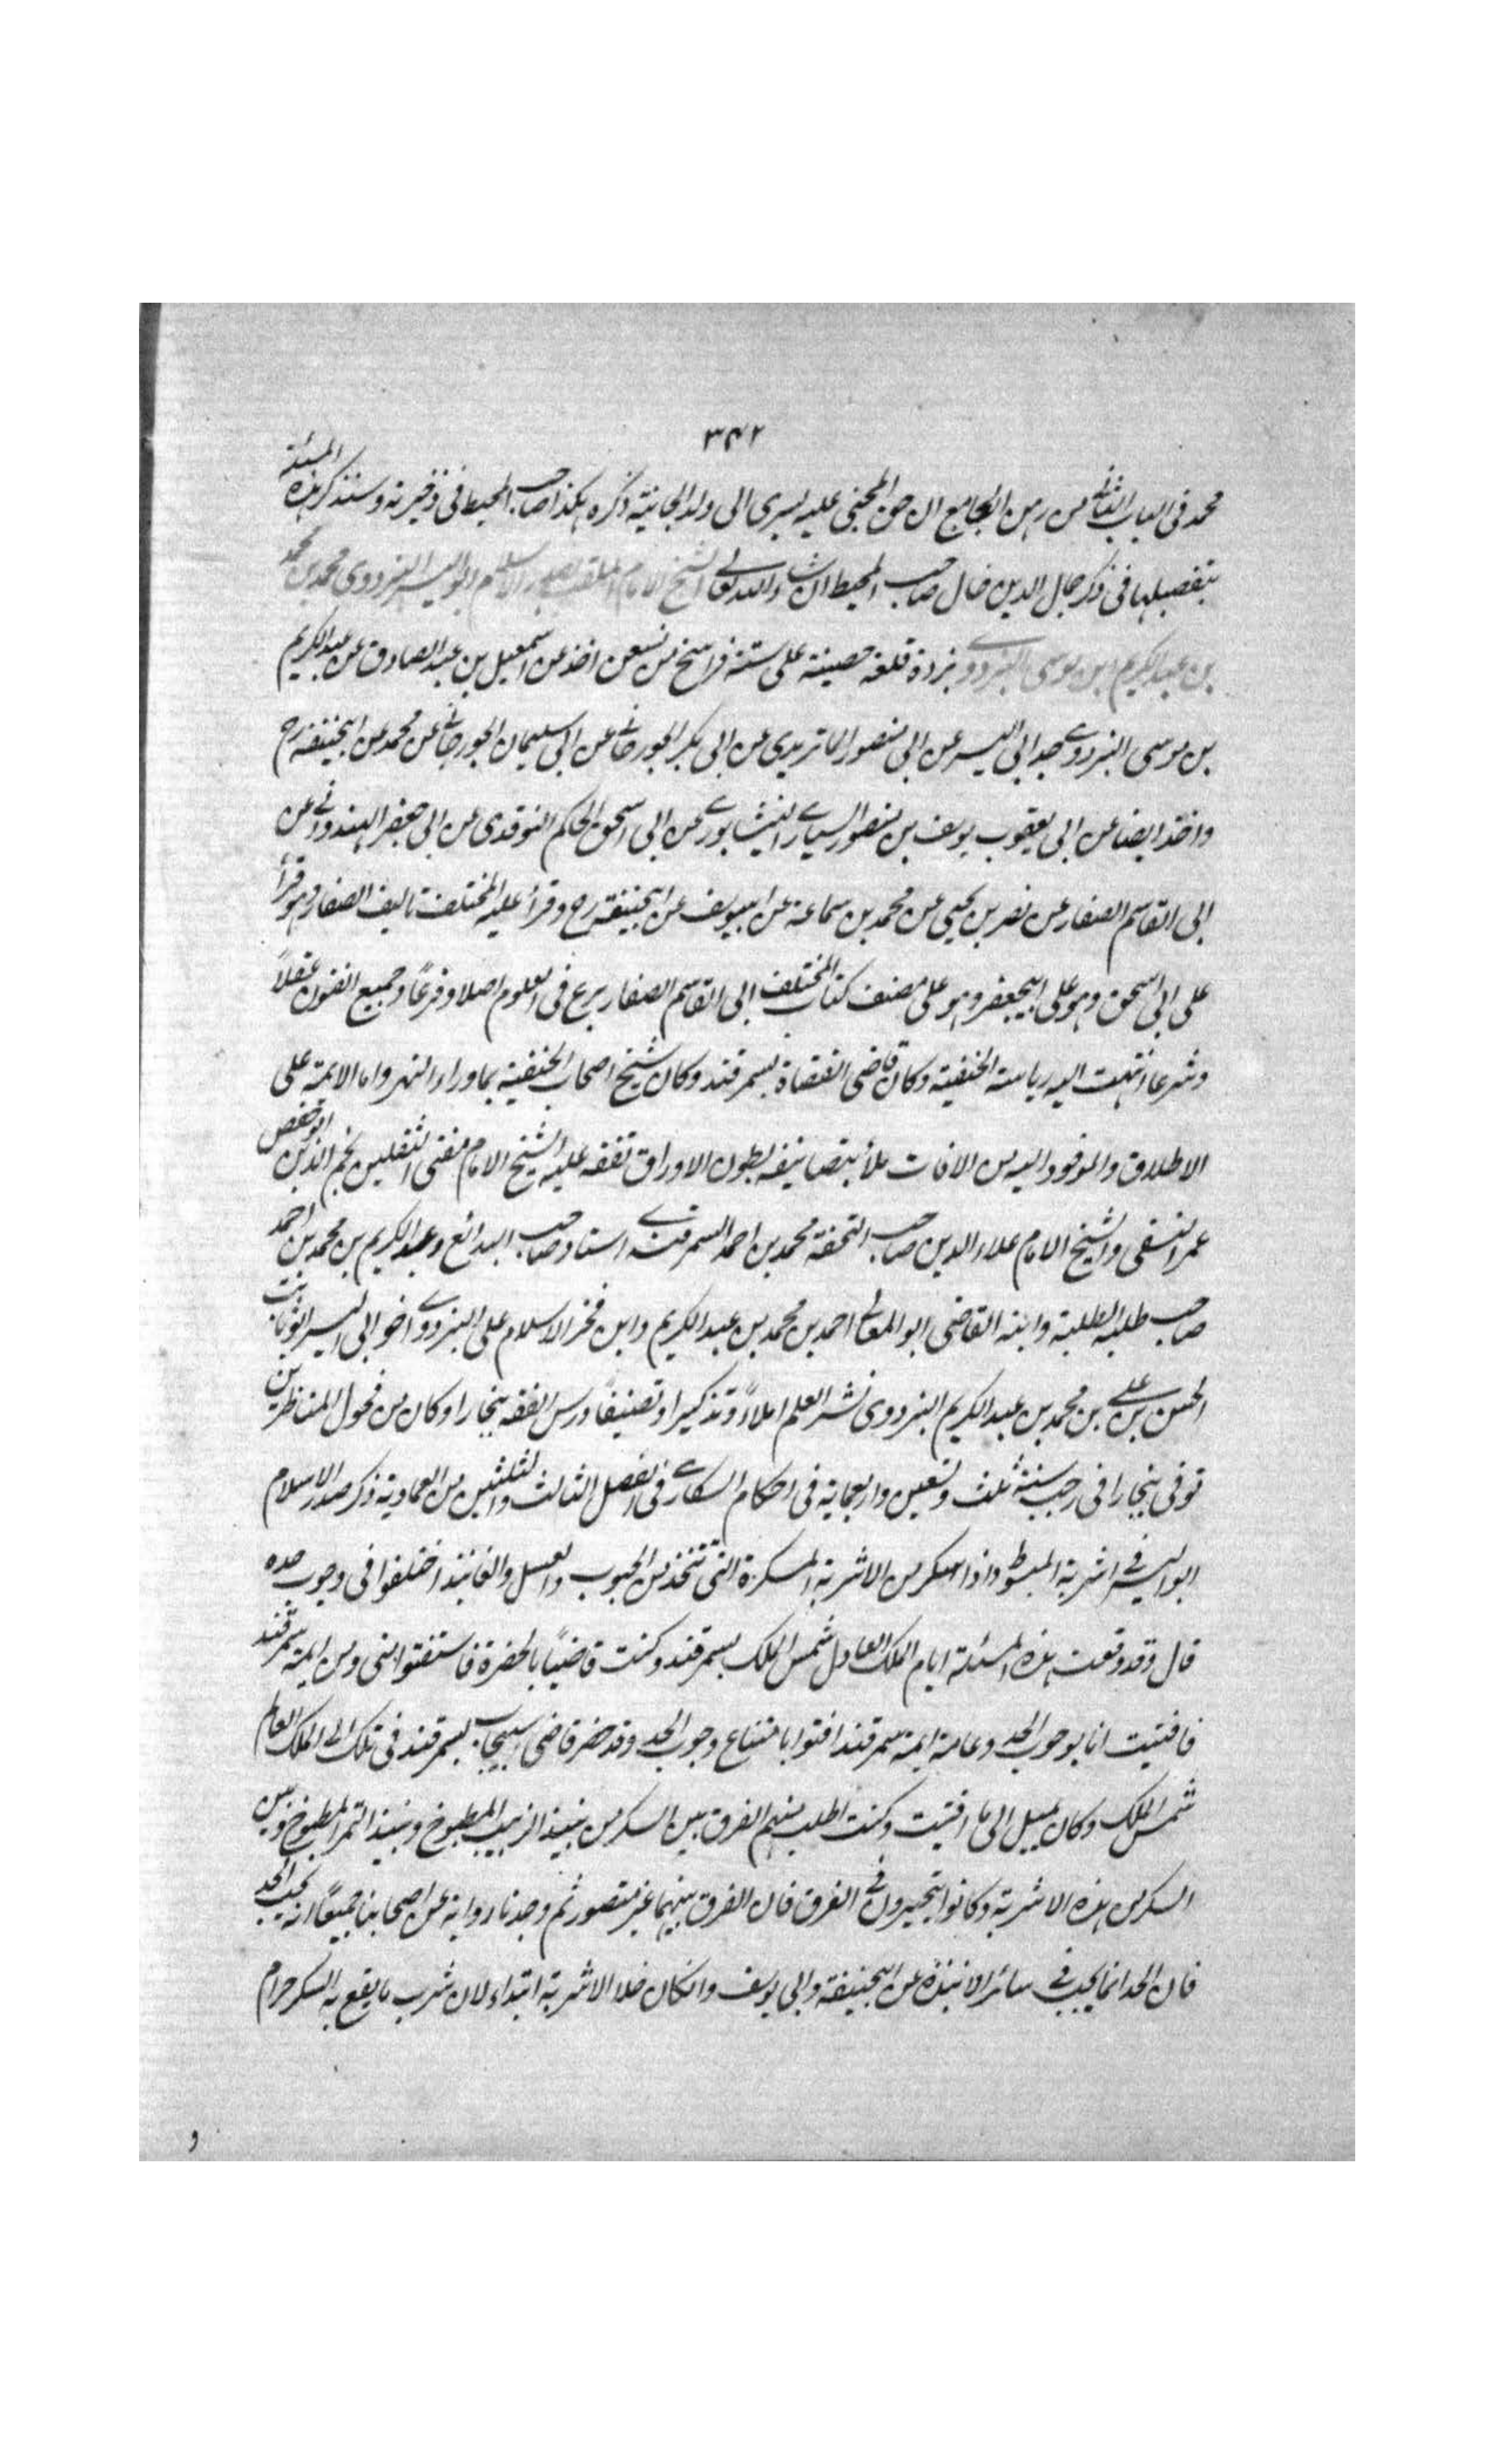 ٣٤٢
محمد فى الباب الثالث من رهن الجامع ان حق المجنى عليه يسرى الى ولد الجانية ذكره هكذا صاحب المحيط فى ذخيرته وسنذكر هذه المسئلة
بتفصيلها فى ذكر جمال الدين خال صاحب المحيط ان شاء الله تعالى الشيخ الامام الملقب بصدر الاسلام ابو اليسر البزدوى محمد بن محمد
بن عبد الكريم بن موسى البزدوى بزدة قلعة حصينة على ستة فراسخ من نسف اخذ عن اسمعيل بن عبد الصادق عن عبد الكريم
بن موسى البزدوى جد ابى اليسر عن ابى منصور الماتريدى عن ابى بكر الجوزجانى عن ابى سليمان الجوزجانى عن محمد عن ابيحنيفة رح
واخذ ايضا عن ابى يعقوب يوسف بن منصور السيارى النيشابورى عن ابى اسحق الحاكم النوقدى عن ابى جعفر الهندوانى عن
ابى القاسم الصفار عن نصر بن يحيى عن محمد بن سماعة عن ابييوسف عن ابيحنيفة رح وقرأ عليه المختلف تاليف الصفار وهو قرأ
على ابى اسحق وهو على ابيجعفر وهو على مصنف كتاب المختلف ابى القاسم الصفار برع فى العلوم اصلا وفرعًا وجميع الفنون عقلاً
وشرعا انتهت اليه رياسة الحنفية وكان قاضى القضاة بسمرقند وكان شيخ اصحاب الحنفية بماوراء النهر وامام الايمة على
الاطلاق والموفود اليه من الافات ملأ بتصانيفه بطون الاوراق تفقه عليه الشيخ الامام مفتى الثقلين نجم الدين ابوحفص
عمر النسفى والشيخ الامام علاء الدين صاحب التحفة محمد بن احمد السمرقندى استاد صاحب البدائع وعبد الكريم بن محمد بن احمد
صاحب طلبة الطلبة وابنه القاضى ابو المعالى احمد بن محمد بن عبد الكريم وابن فخر الاسلام على البزدوى اخو ابى اليسر ابو ثابت
الحسن بن على بن محمد بن عبد الكريم البزدوى نشر العلم املاءً وتذكيرا وتصنيفًا ودرس الفقه ببخارا وكان من فحول المناظرين
توفى ببخارا فى رجب سنة ثلث وتسعين واربعماية فى احكام السكارى فى الفصل الثالث والثلثين من العمادية ذكر صدر الاسلام
ابو اليسر فى اشربة المبسوط واذا سكر من الاشربة المسكرة التى تتخذ من الحبوب والعسل والفانيذ اختلفوا فى وجوب حده
قال وقد وقعت هذه المسئلة ايام الملك العادل شمس الملك بسمرقند وكنت قاضيًا بالحضرة فاستفتوا منى ومن ايمة سمرقند
فافتيت انا بوجوب الحد وعامة ايمة سمرقند افتوا بامتناع وجوب الحد وقد حضر قاضى اسبيجاب بسمرقند فى تلك الى الملك العالم
شمس الملك وكان يميل الى ما افتيت وكنت اطلب منهم الفرق بين السكر من نبيذ الزبيب المطبوخ ونبيذ التمر المطبوخ وبين
السكر من هذه الاشربة وكانوا يتحيرون فى الفرق فان الفرق بينهما غير متصور ثم وجدنا رواية عن اصحابنا جميعًا انه يجب الحد
فان الحد انما يجب فى سائر الانبذة عن ابيحنيفة وابى يوسف وانكان حلا الاشربة ابتداء لان شرب ما يقع به السكر حرام
و